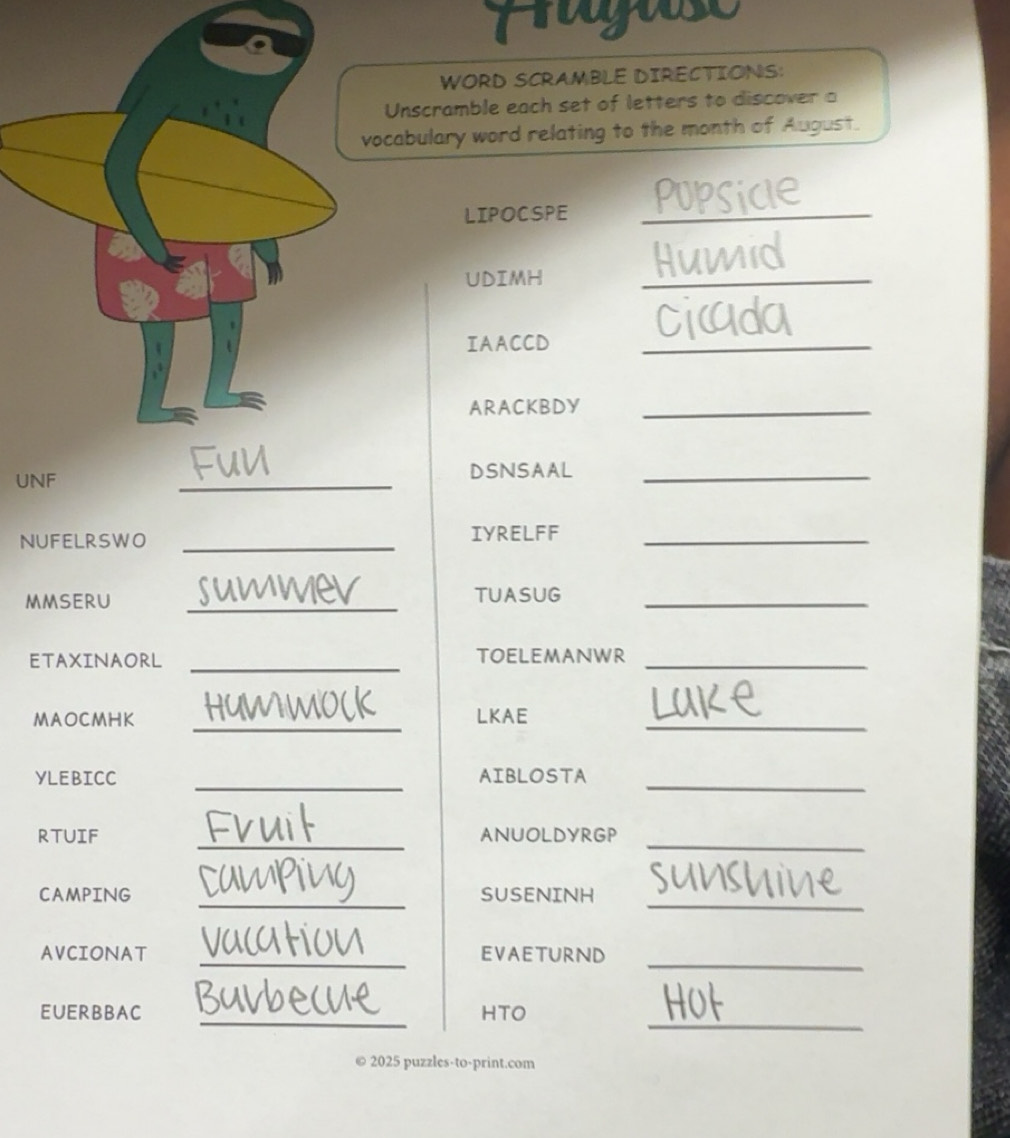 August
WORD SCRAMBLE DIRECTIONS:
Unscramble each set of letters to discover a
vocabulary word relating to the month of August.
UNF Fun
NUFELRSWO
MMSERU summer
ETAXINAORL
MAOCMHK Hammock
YLEBICC
RTUIF Fruit
CAMPING camping
AVCIONAT vacation
EUERBBAC Barbecue
LIPOCSPE Popsicle
UDIMH Humid
IAACCD Cicada
ARACKBDY
DSNSAAL
IYRELFF
TUASUG
TOELEMANWR
LKAE Lake
AIBLOSTA
ANUOLDYRGP
SUSENINH sunshine
EVAETURND
HTO Hot
© 2025 puzzles-to-print.com